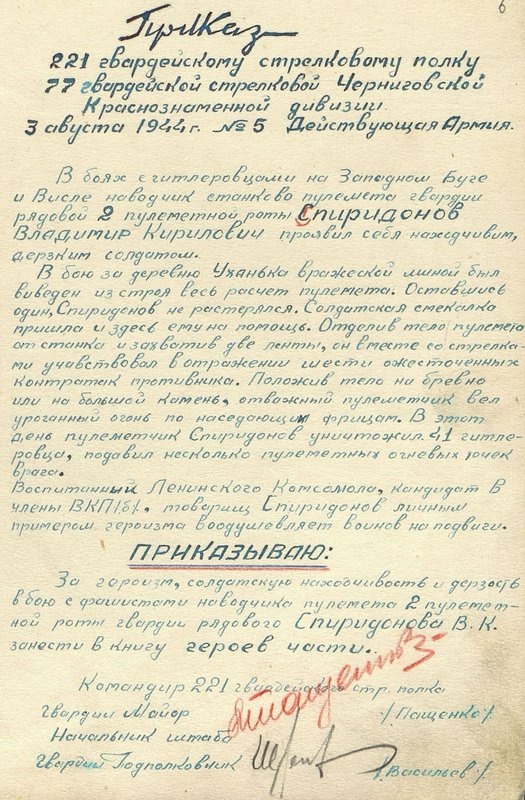 6
Приказ
221 гвардейскому стрелковому полку
77 гвардейской стрелковой Черниговской
Краснознаменной дивизии.
3 августа 1944 г. №5 Действующая Армия.
В боях с гитлеровцами на Западном Буге
и Висле наводчик станково пулемета гвардии
рядовой 2 пулеметной роты Спиридонов
Владимир Кирилович проявил себя находчивим,
дерзким солдатом.
В бою за деревню Уханька вражеской миной был
виведен из строя весь расчет пулемета. Оставшись
один, Спиридонов не растерялся. Солдатская смекалка
пришла и здесь ему на помощь. Отделив тело пулемета
от станка и захватив две ленты, он вместе со стрелка-
ми учавствовал в отражении шести ожесточенных
контратак противника. Положив тело на бревно
или на большой камень, отвожный пулеметчик вел
ураганный огонь по наседающим фрицам. В этот
день пулеметчик Спиридонов уничтожил 41 гитле-
ровца, подавил несколько пулеметных огневых точек
врага.
Воспитанный Ленинского Комсомола, кандидат в
члены ВКП/б/, товарищ Спиридонов личным
примером героизма воодушевляет воинов на подвиги.
ПРИКАЗЫВАЮ:
За героизм, солдатскую находчивость и дерзость
в бою с фашистами наводчика пулемета 2 пулемет-
ной роты гвардии рядового Спиридонова В. К.
занести в книгу героев части.
Командир 221 гвардейского стр. полка
гвардии Майор /Пащенко/
Начальник штаба
гвардии Подполковник /Васильев/